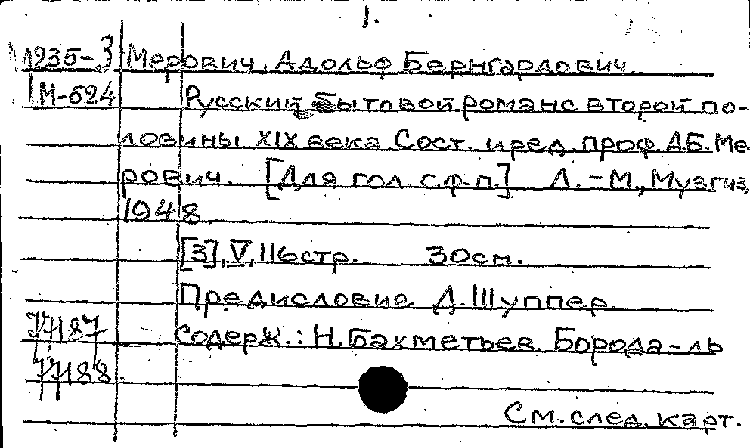 1.
М235-3 Мерович, Адольф Бернгардович.
М-624 Русский бытовой романс второй по-
ловины XIX века Сост. и ред. проф. А.Б. Ме-
рович. [Для гол. с ф-п.] Л.-М., Музгиз,
1948
[3], V, 116 стр. 30 см.
Предисловие Д. Шуппер.
77187 Содерж.: Н. Бахметьев. Борода-ль
77188
См. след. карт.